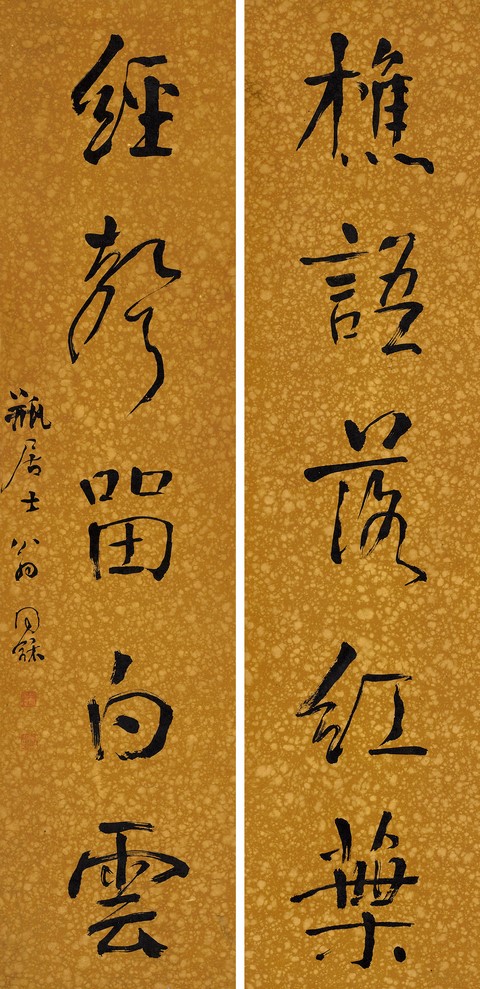 樵語落紅葉
經聲留白雲
瓶居士翁同龢